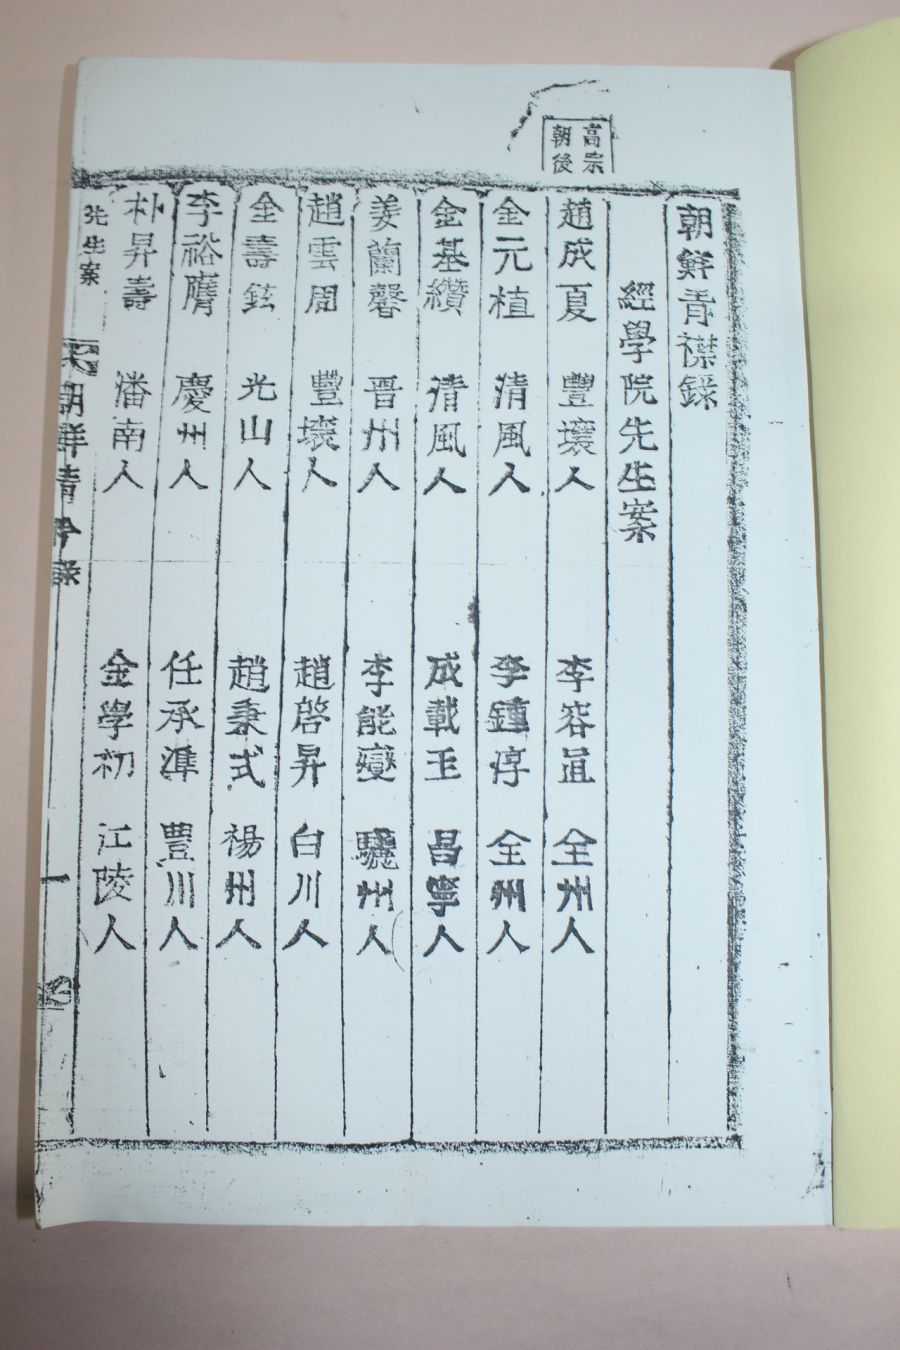 高宗
朝後
朝鮮青襟錄
經學院先生案
趙成夏 豐壤人 李容直 全州人
金元植 清風人 李鍾淳 全州人
金基纘 清風人 成載玉 昌寧人
姜蘭馨 晋州人 李能燮 驪州人
趙雲周 豐壤人 趙啓昇 白川人
金壽鉉 光山人 趙秉式 楊州人
李裕膺 慶州人 任承準 豊川人
朴昇壽 潘南人 金學初 江陵人
先生案
朝鮮青衿錄
一